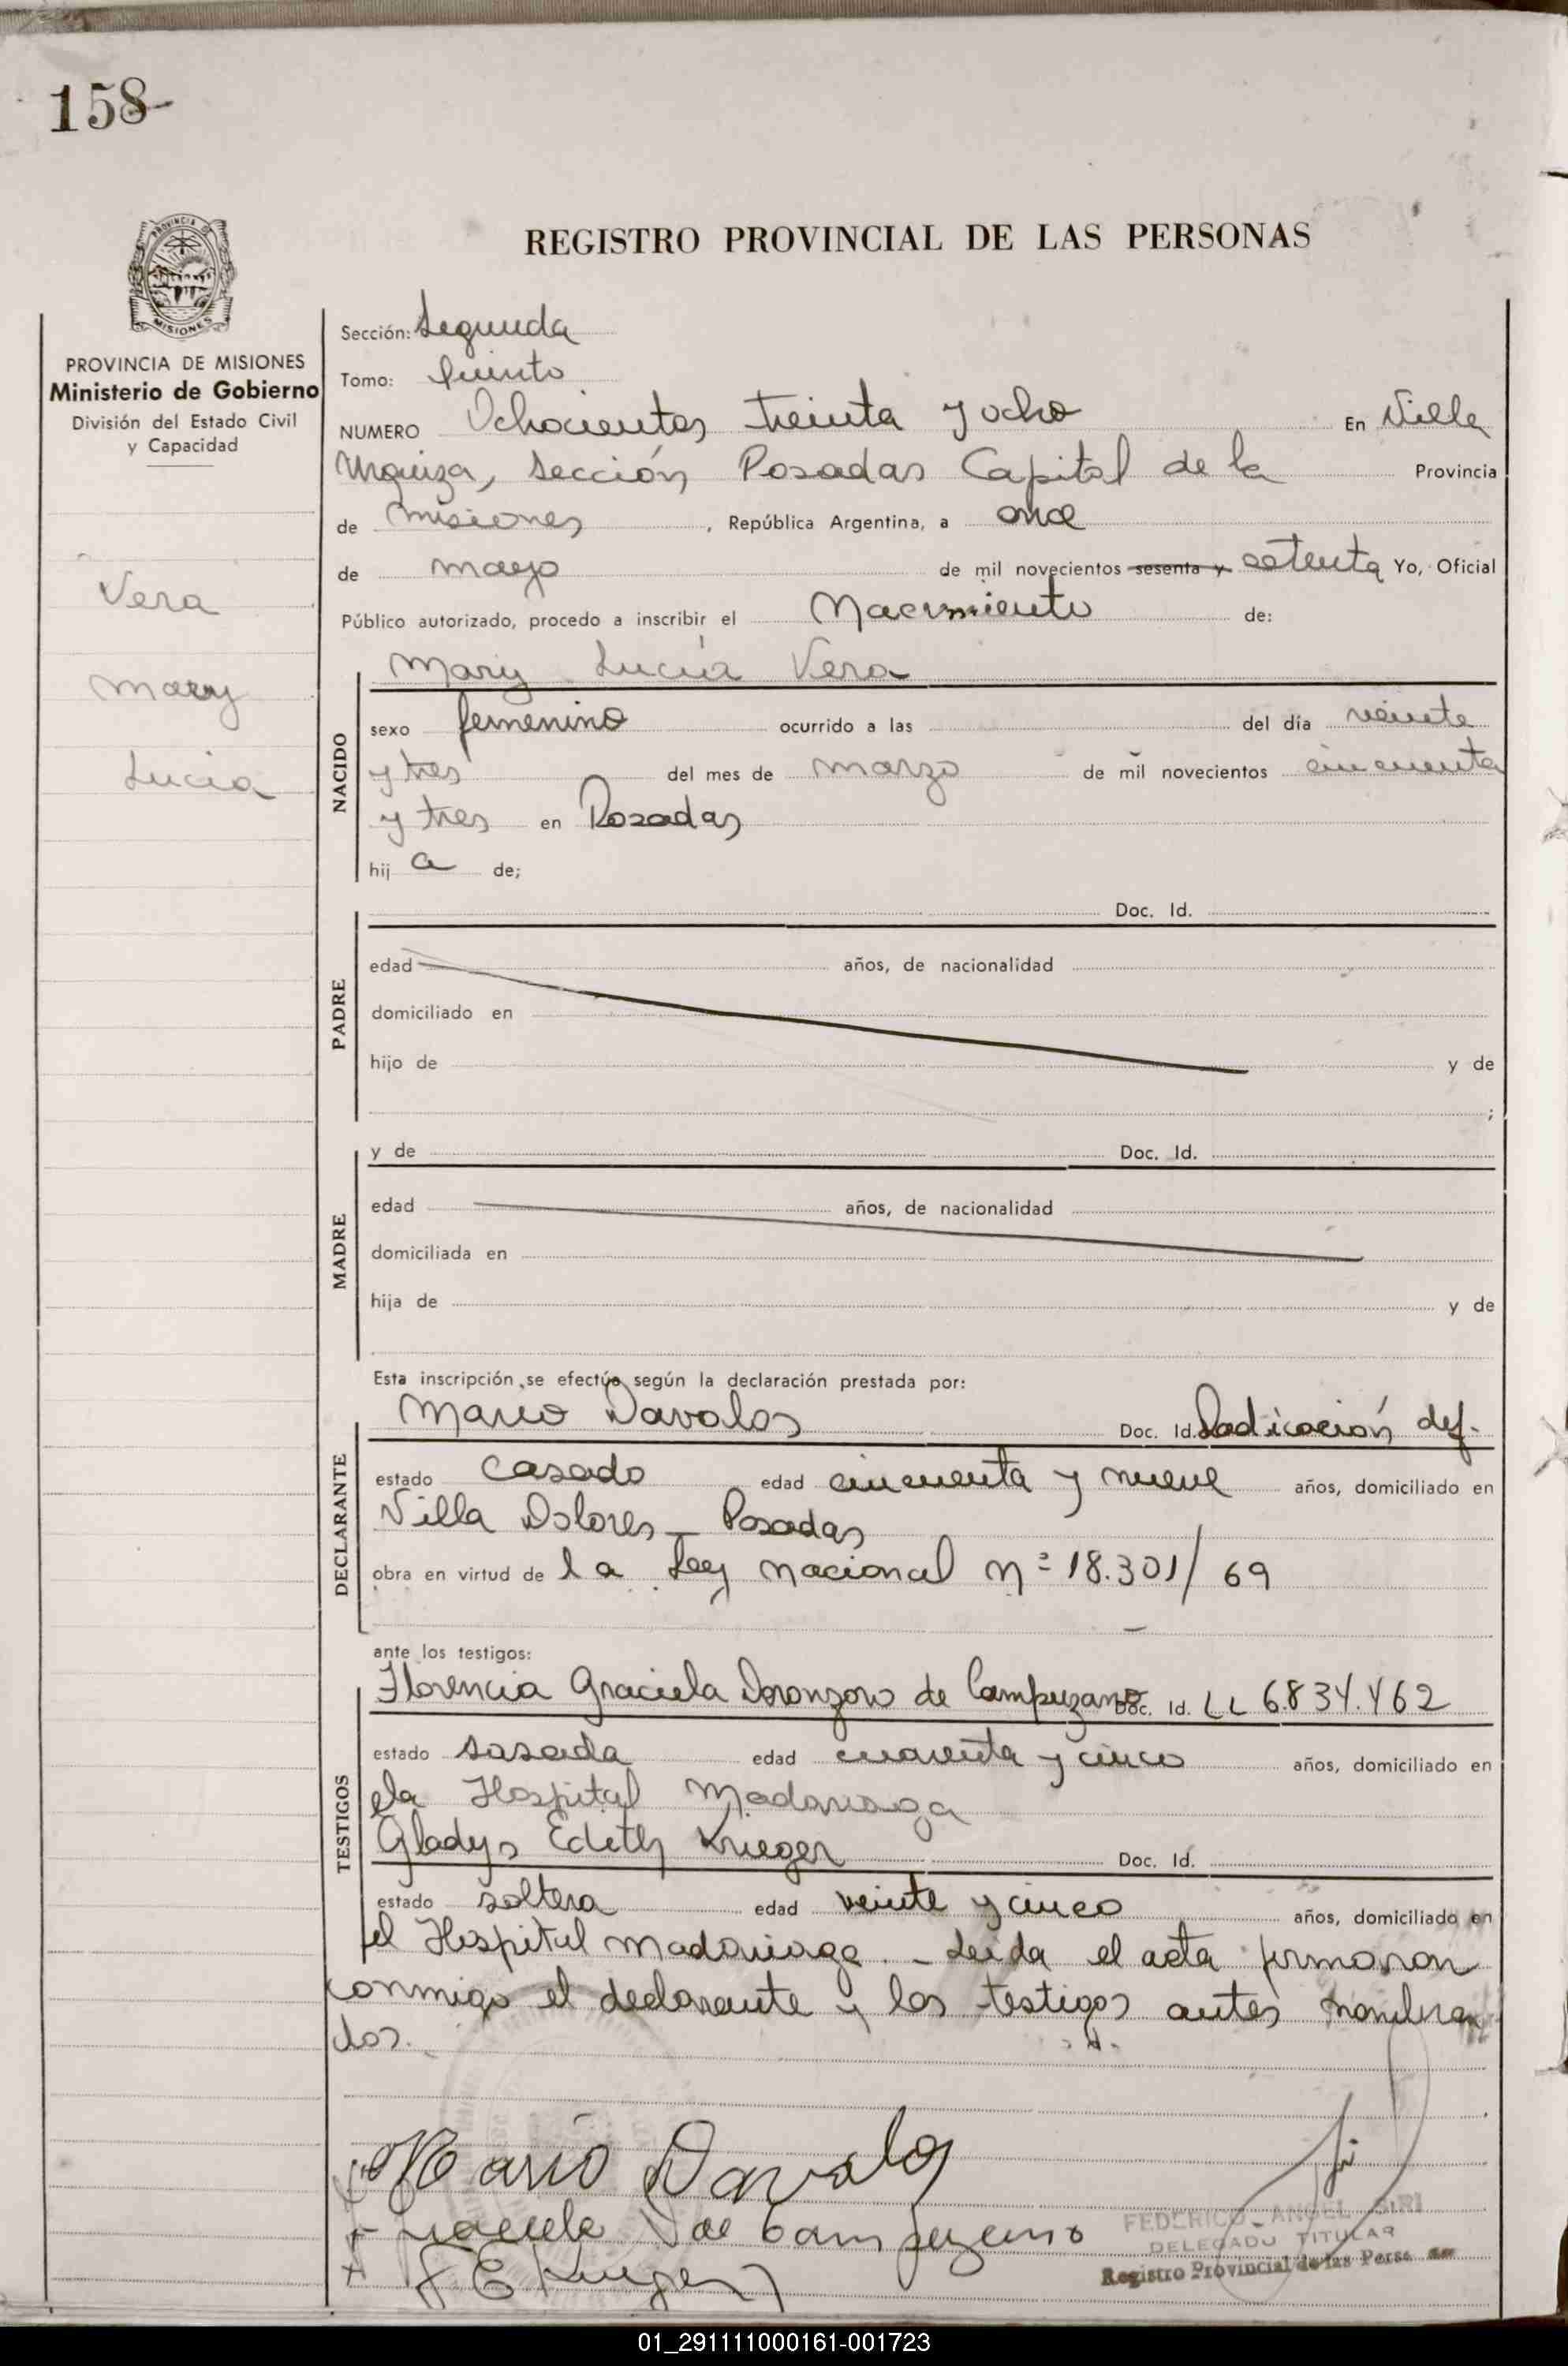 158-
PROVINCIA DE
MISIONES
REGISTRO PROVINCIAL DE LAS PERSONAS
PROVINCIA DE MISIONES
Ministerio de Gobierno
División del Estado Civil
y Capacidad
Vera
Mary
Lucia
Sección: Segunda
Tomo: Quinto
NUMERO Ochocientos treinta y ocho En Villa
Urquiza, Sección Posadas Capital de la Provincia
de Misiones, República Argentina, a once
de mayo de mil novecientos sesenta y setenta Yo, Oficial
Público autorizado, procedo a inscribir el Nacimiento de:
NACIDO
Mary Lucía Vera
sexo femenino ocurrido a las del día veinte
y tres del mes de marzo de mil novecientos cincuenta
y tres en Posadas
hij a de;
PADRE
Doc. Id.
edad años, de nacionalidad
domiciliado en
hijo de y de
;
MADRE
y de Doc. Id.
edad años, de nacionalidad
domiciliada en
hija de y de
Esta inscripción se efectúa según la declaración prestada por:
DECLARANTE
Mario Davalos Doc. Id. Radicación def.
estado casado edad cincuenta y nueve años, domiciliado en
Villa Dolores - Posadas
obra en virtud de la Ley nacional nº 18.301/69
ante los testigos:
TESTIGOS
Florencia Graciela de Campuzano Doc. Id. LC 6.834.462
estado edad cuarenta y cinco años, domiciliado en
Hospital Madariaga
Gladys Edith Krieger Doc. Id.
estado soltera edad veinte y cinco años, domiciliado en
el Hospital Madariaga - Leída el acta firmaron
conmigo el declarante y los testigos antes nombra
dos.
Mario Davalos
de Campuzano
G E Krieger
FEDERICO ANGEL SIRI
DELEGADO TITULAR
Registro Provincial de las Personas
01_291111000161-001723